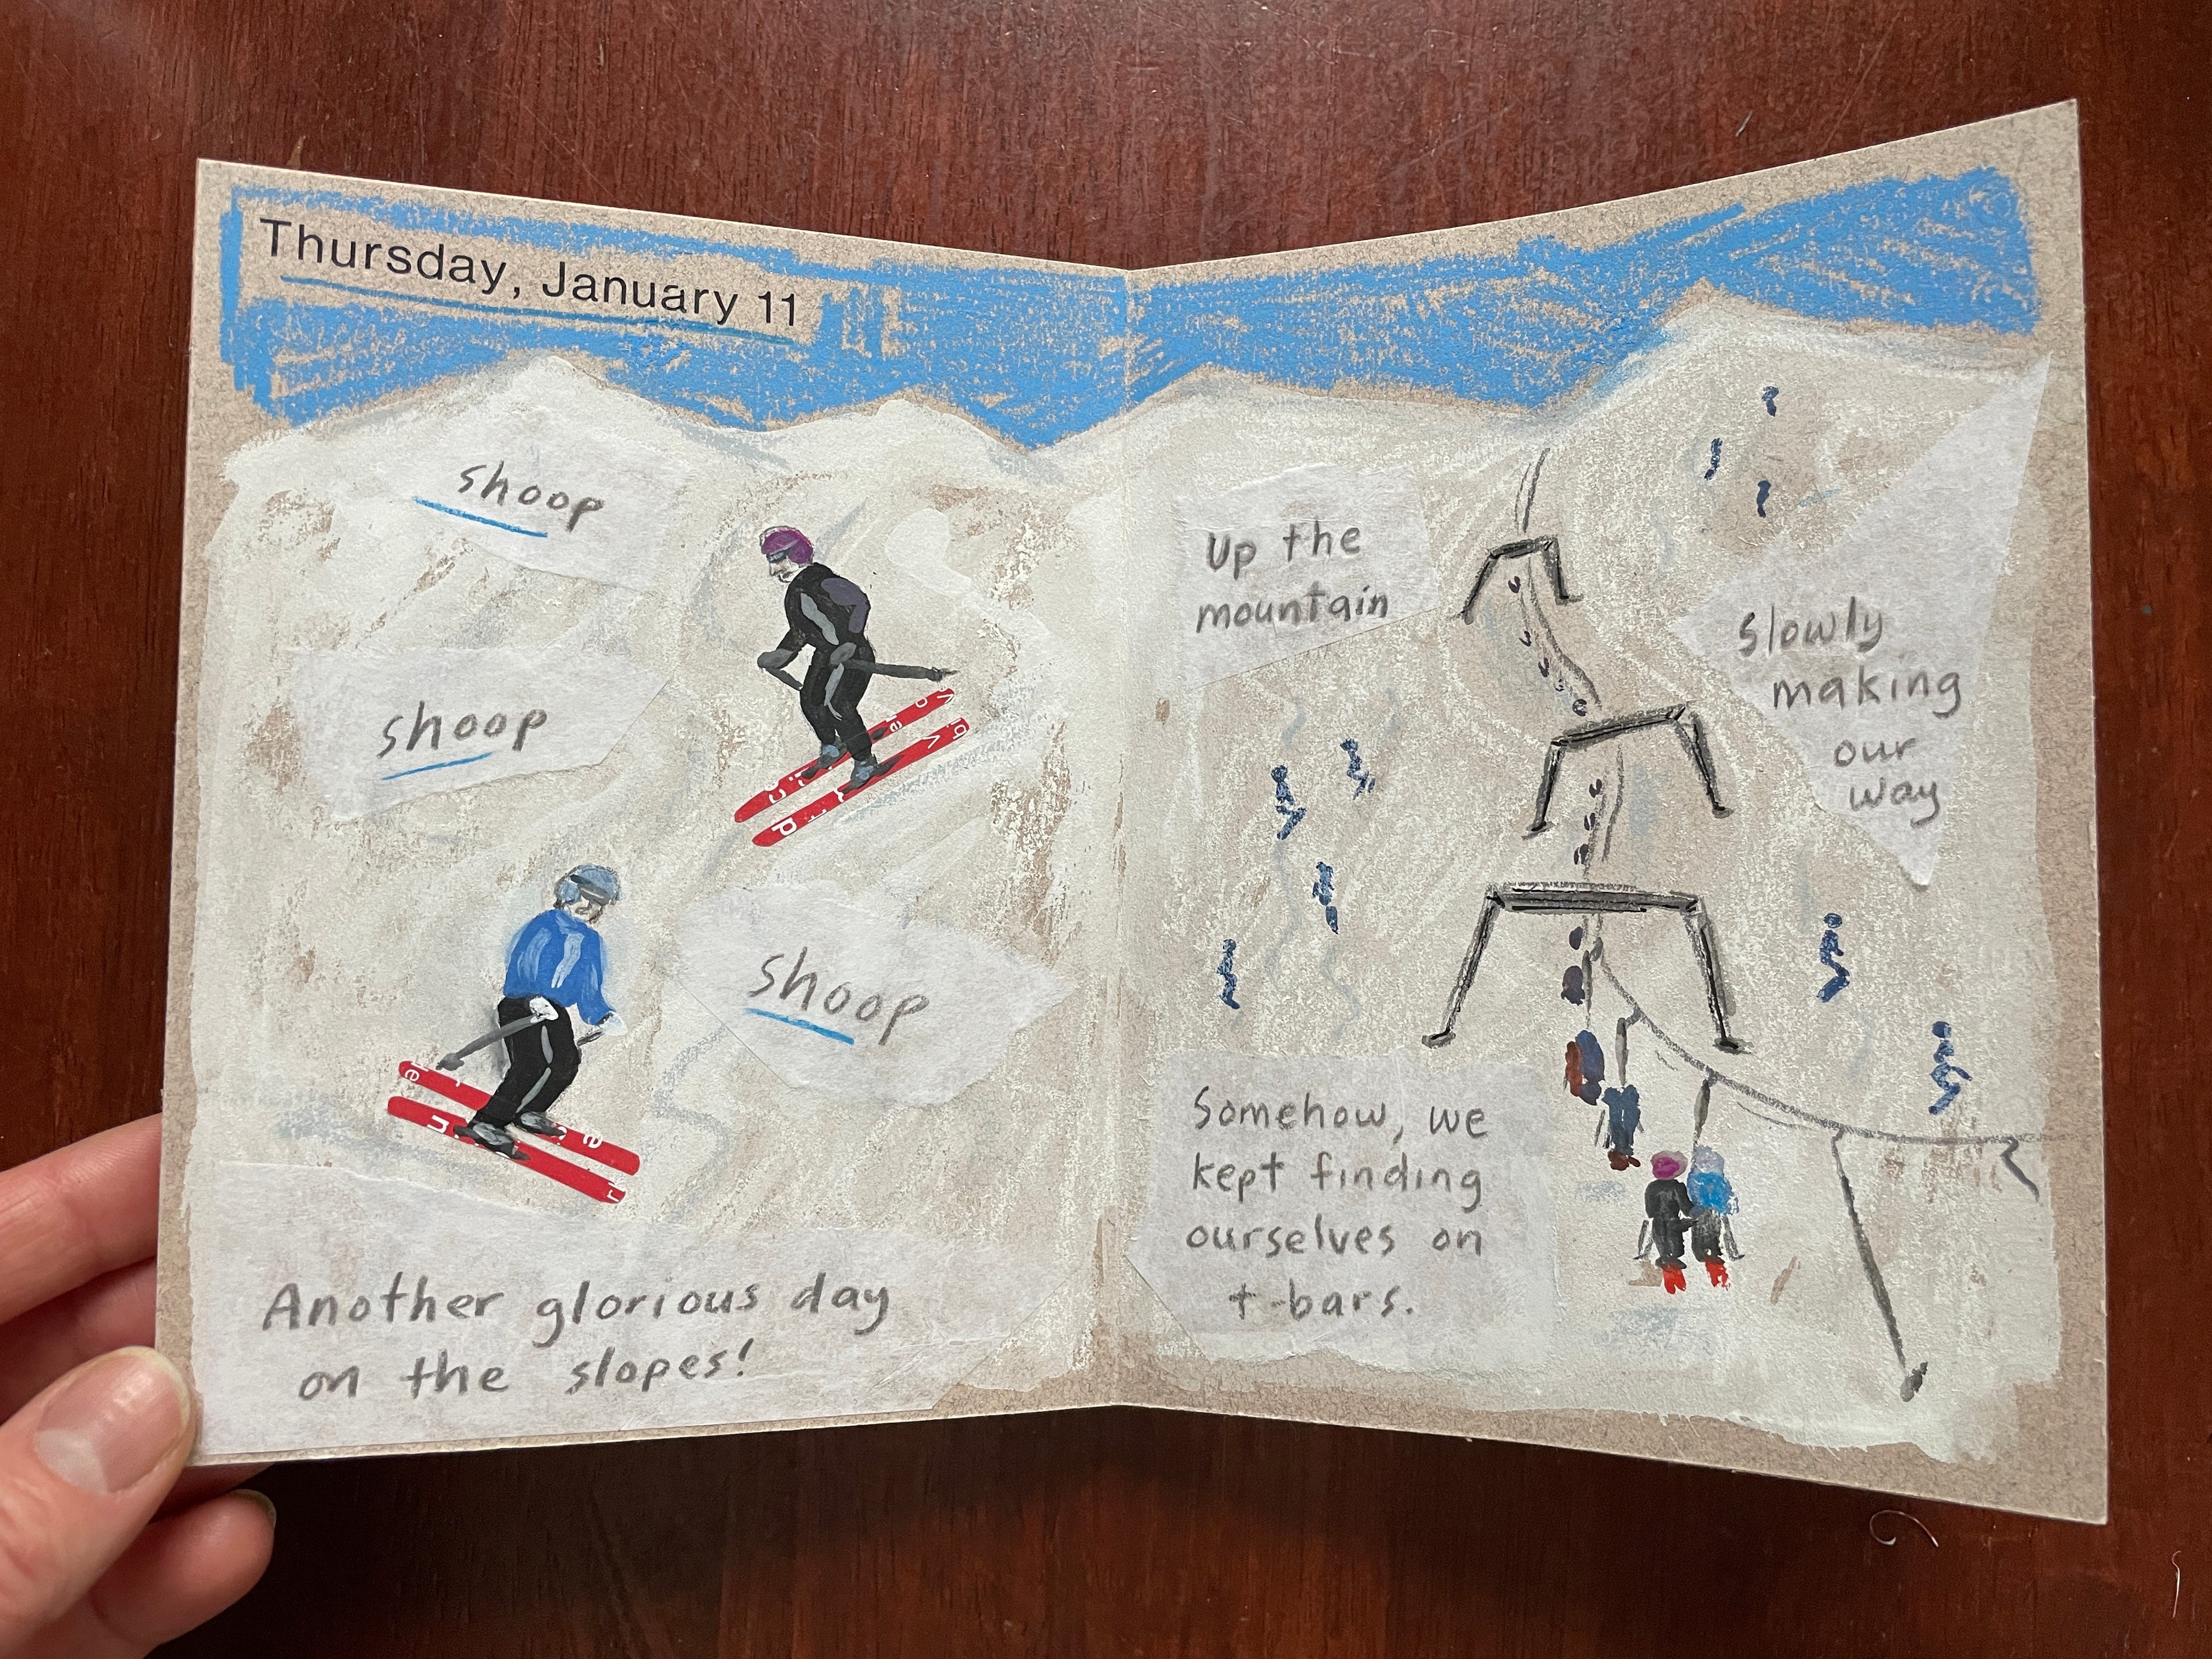 Thursday, January 11
shoop
shoop
shoop
Another glorious day
on the slopes!
Up the
mountain
Slowly
making
our
way
Somehow, we
kept finding
ourselves on
t-bars.